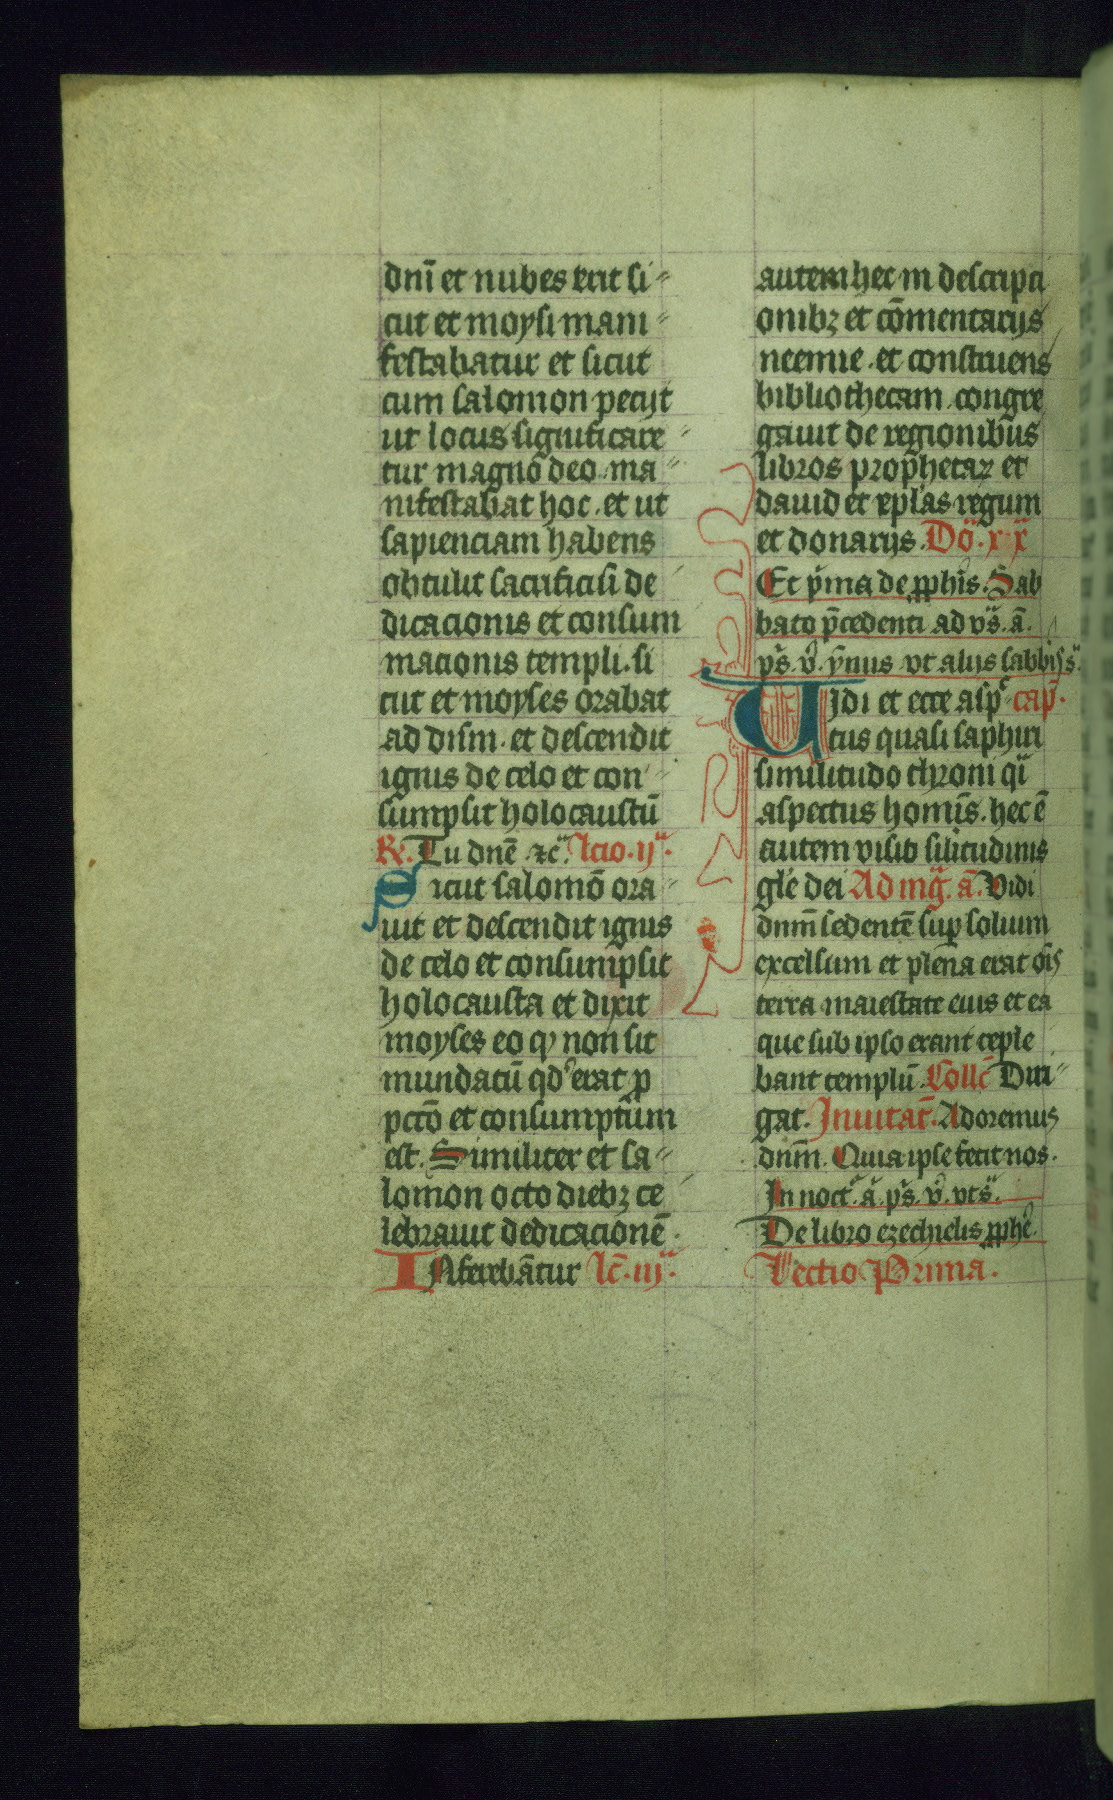 dnī et nubes erit si-
cut et moysi mani-
festabatur et sicut
cum salomon peciit
ut locus significare-
tur magno deo ma-
nifestabat hoc. et ut
sapienciam habens
obtulit sacrificiū de
dicacionis et consum
macionis templi. si
cut et moyses orabat
ad dn̄m. et descendit
ignis de celo et con-
sumpsit holocaustū
R. Tu dn̄e ⁊c̄. lcio. ijᵃ.
Sicut salomō ora-
uit et descendit ignis
de celo et consumpsit
holocausta et dixit
moyses eo qꝫ non sit
mundatū qd̓ erat ꝓ
pctō et consumptum
est. Similiter et sa-
lomon octo diebꝫ ce
lebrauit dedicacionē.
INferebātur lc̄. iijᵃ.
autem hec in descripci
onibꝫ et cōmentarijs
neemie. et construens
bibliothecam. congre
gauit de regionibus
libros prophetaꝝ et
dauid et epl̄as regum
et donarijs. Dō. xxᵃ
Et p̄ma de ꝓph̄is. Sab
bato p̄cedenti ad vs̄. ā.
ps̄. v̄. ymnus vt alijs sabbīs
VIdi et ecce asp- cap̄.
ctus quasi saphiri
similitudo throni qᵃi
aspectus homīs. hec ē
autem visio silitudinis
gl̄e dei Ad mḡ. ā. Vidi
dnm̄ sedentē sup̄ solium
excelsum et plena erat oīs
terra maiestate eius et ea
que sub ipso erant reple
bant templū. Collc̄ Diri-
gat. Inuitat̄. Adoremus
dnm̄. Quia ipse fecit nos.
In noct̄. ā. ps̄. v̄. vt sᵃ.
De libro ezechielis ꝓphe.
Lectio Prima.